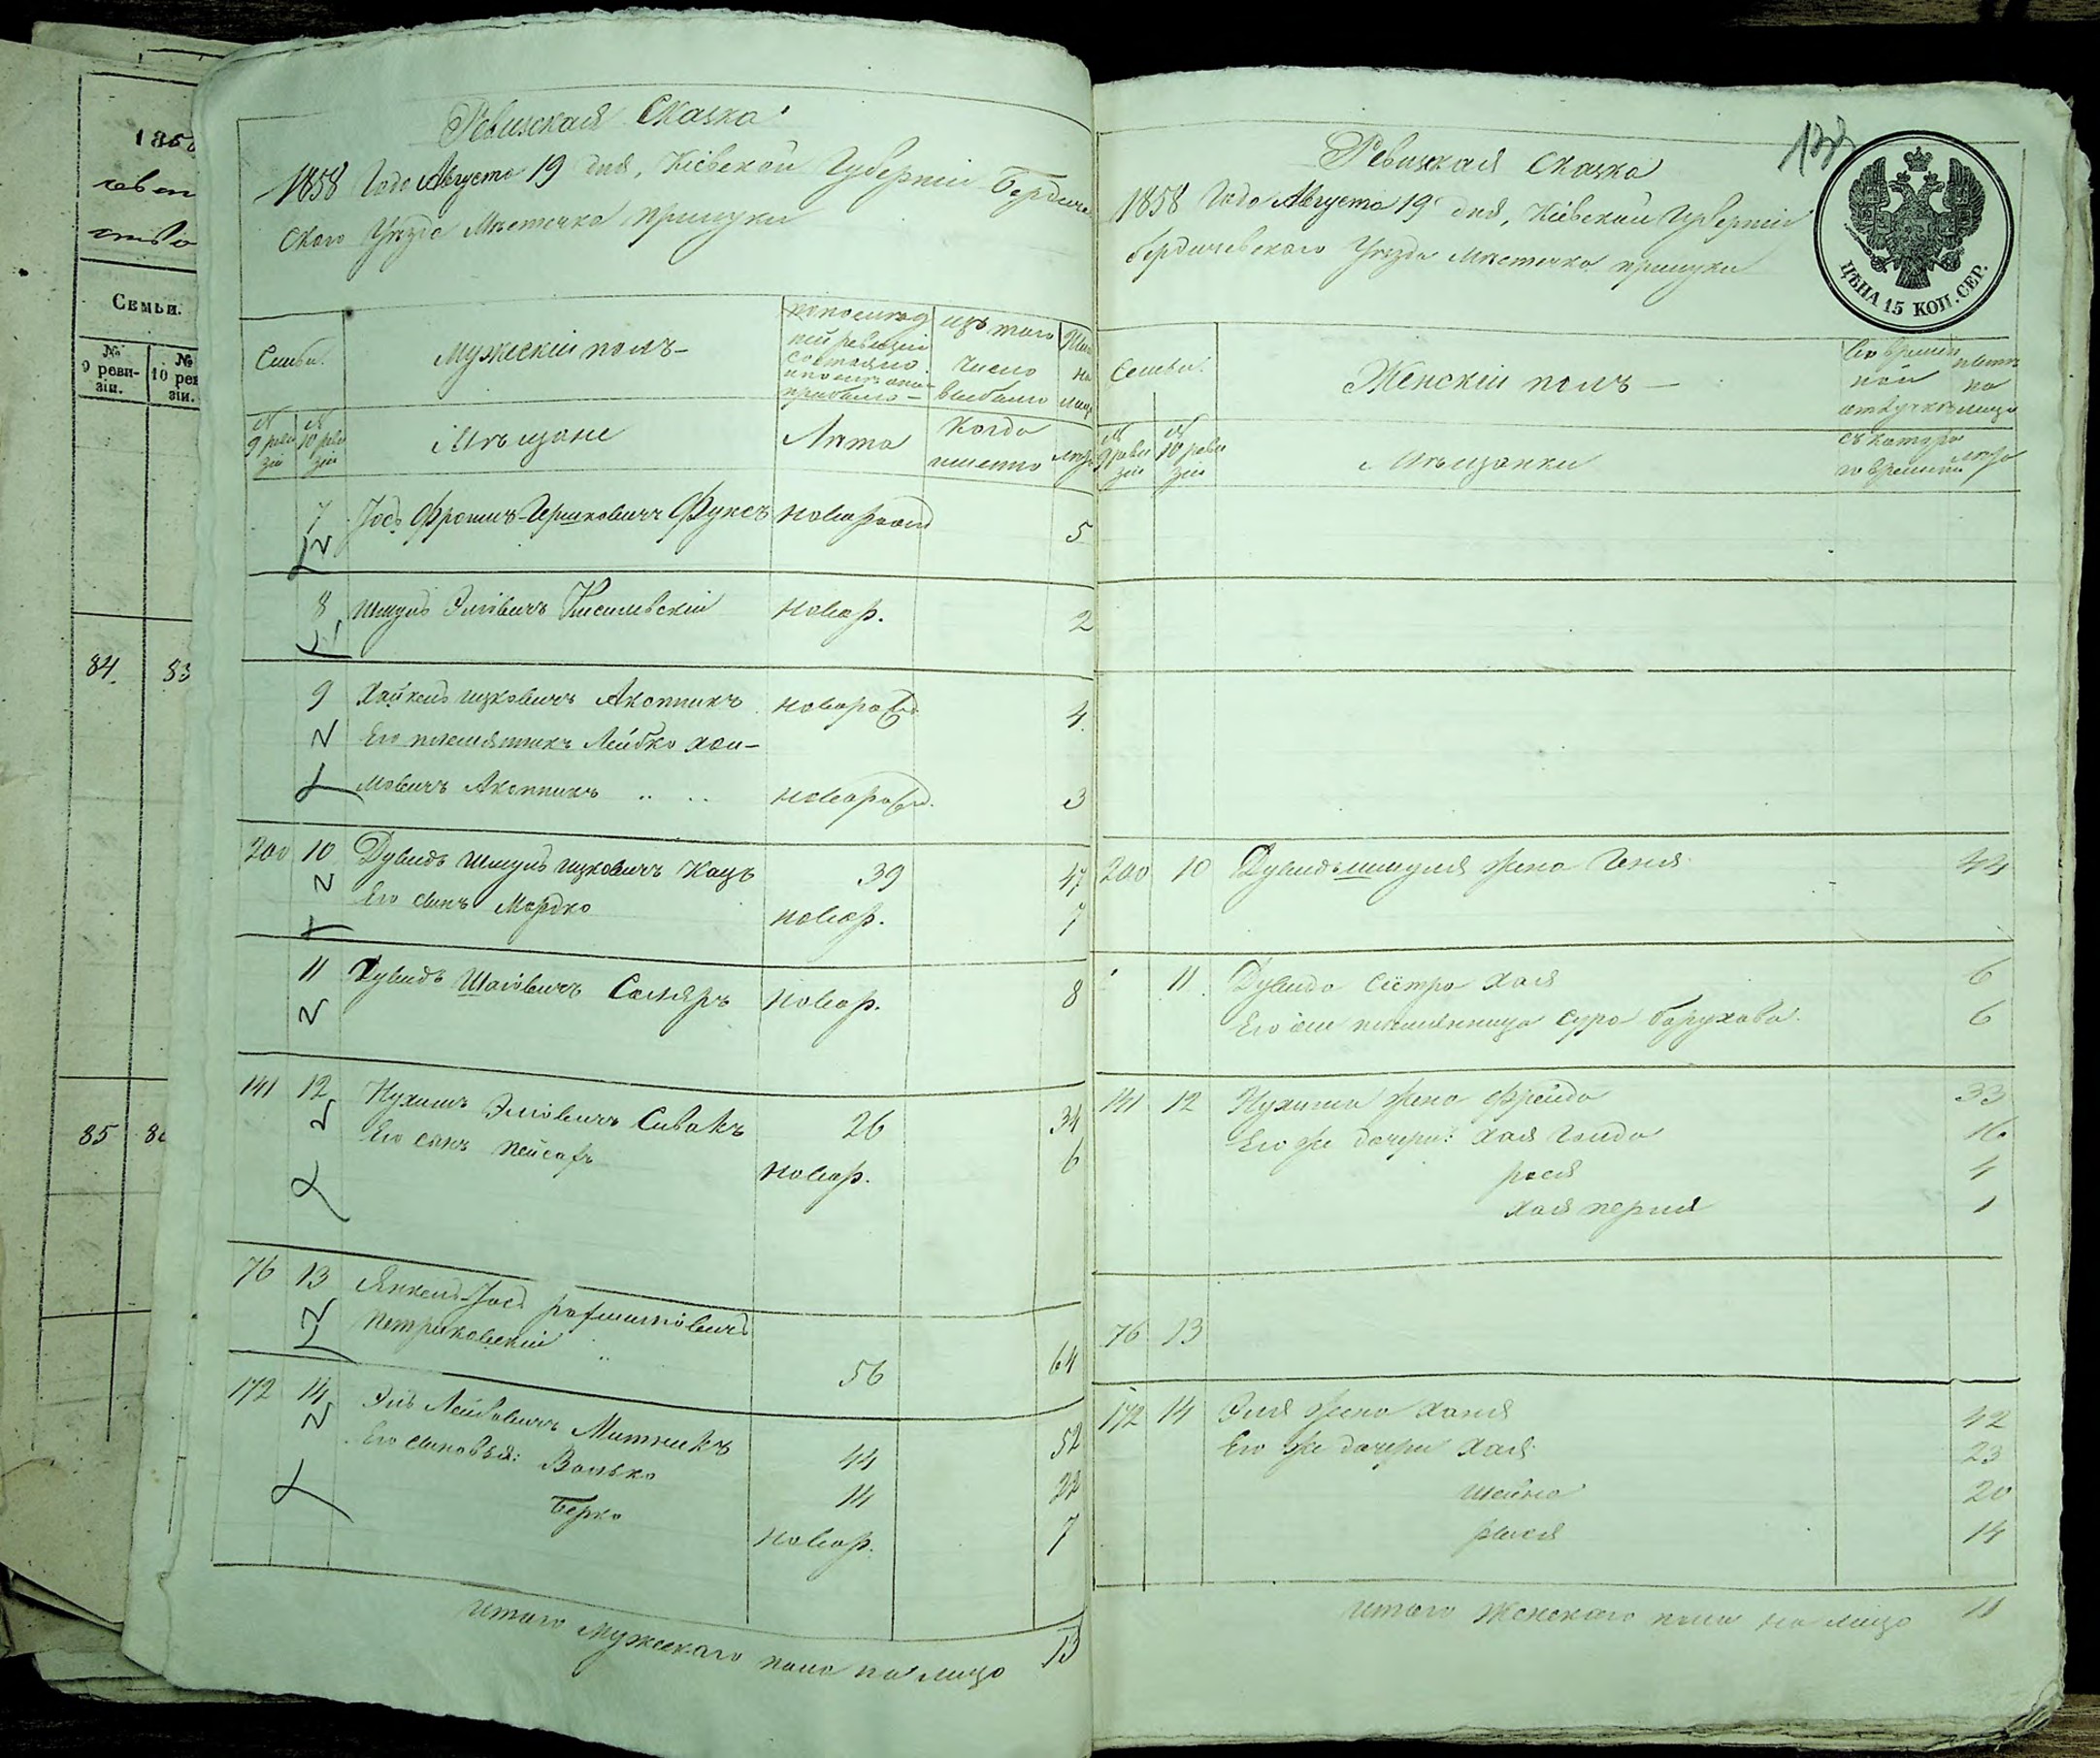 1858
Семьи.
№ 9 реви-зіи.
№ 10 рев зіи.
84. 83
85
Ревизская Сказка
1858 Года Августа 19 дня, Кіевской Губерніи Бердичев
скаго Уезда Местечка прилуки
Семьи.
Мужескій полъ
по последней ревизіи состояло и после оной прибыло
изъ того числа выбыло
Ныне на лицо
№ 9 реви зіи
№ 10 реви зіи
Мещане
Лета
Когда именно
лета
7 Іось Фроимъ Гершковичъ Фуксъ новорожд 5
8 Шмуль Эліовичъ Киселевскій новор. 2
9 Хайкель Ицковичъ Акопникъ новорожд 4
Его племянникъ Лейбко Хаи-
мовичъ Акопникъ новорожд. 3
200 10 Дувидъ Шмуль Ицковичъ Кацъ 39 47
Его сынъ Мордко новор. 7
11 Дувидъ Шаіовичъ Столяръ новор. 8
141 12 Нухимъ Эліовичъ Сивакъ 26 34
Его сынъ Пейсахъ новор. 6
76 13 Янкель-Іось
Петриковскій 56 64
172 14 Эль Лейбовичъ Митникъ 44 52
Его сыновья: Волько 14 22
Берко новор. 7
Итого мужескаго пола на лицо 13
Ревизская Сказка
1858 Года Августа 19 дня, Кіевской Губерніи
Бердичевскаго Уезда Местечка прилуки
ЦѢНА 15 КОП. СЕР.
Семьи.
Женскій полъ
Во временной отлучке
ныне на лицо
№ 9 реви зіи
№ 10 реви зіи
Мещанки
съ котораго времени
лета
200 10 Дувидъ Шмуля жена Геня 44
11 Дувида сестра Хая 6
Его племянница Сура Борухова 6
141 12 Нухима жена Фрейда 33
Его же дочери: Хая Голда 16
Рося 4
Хая Перля 1
76 13
172 14 Эля жена Ханя 42
Его же дочери Хая 23
Шейна 20
14
Итого женскаго пола на лицо 11